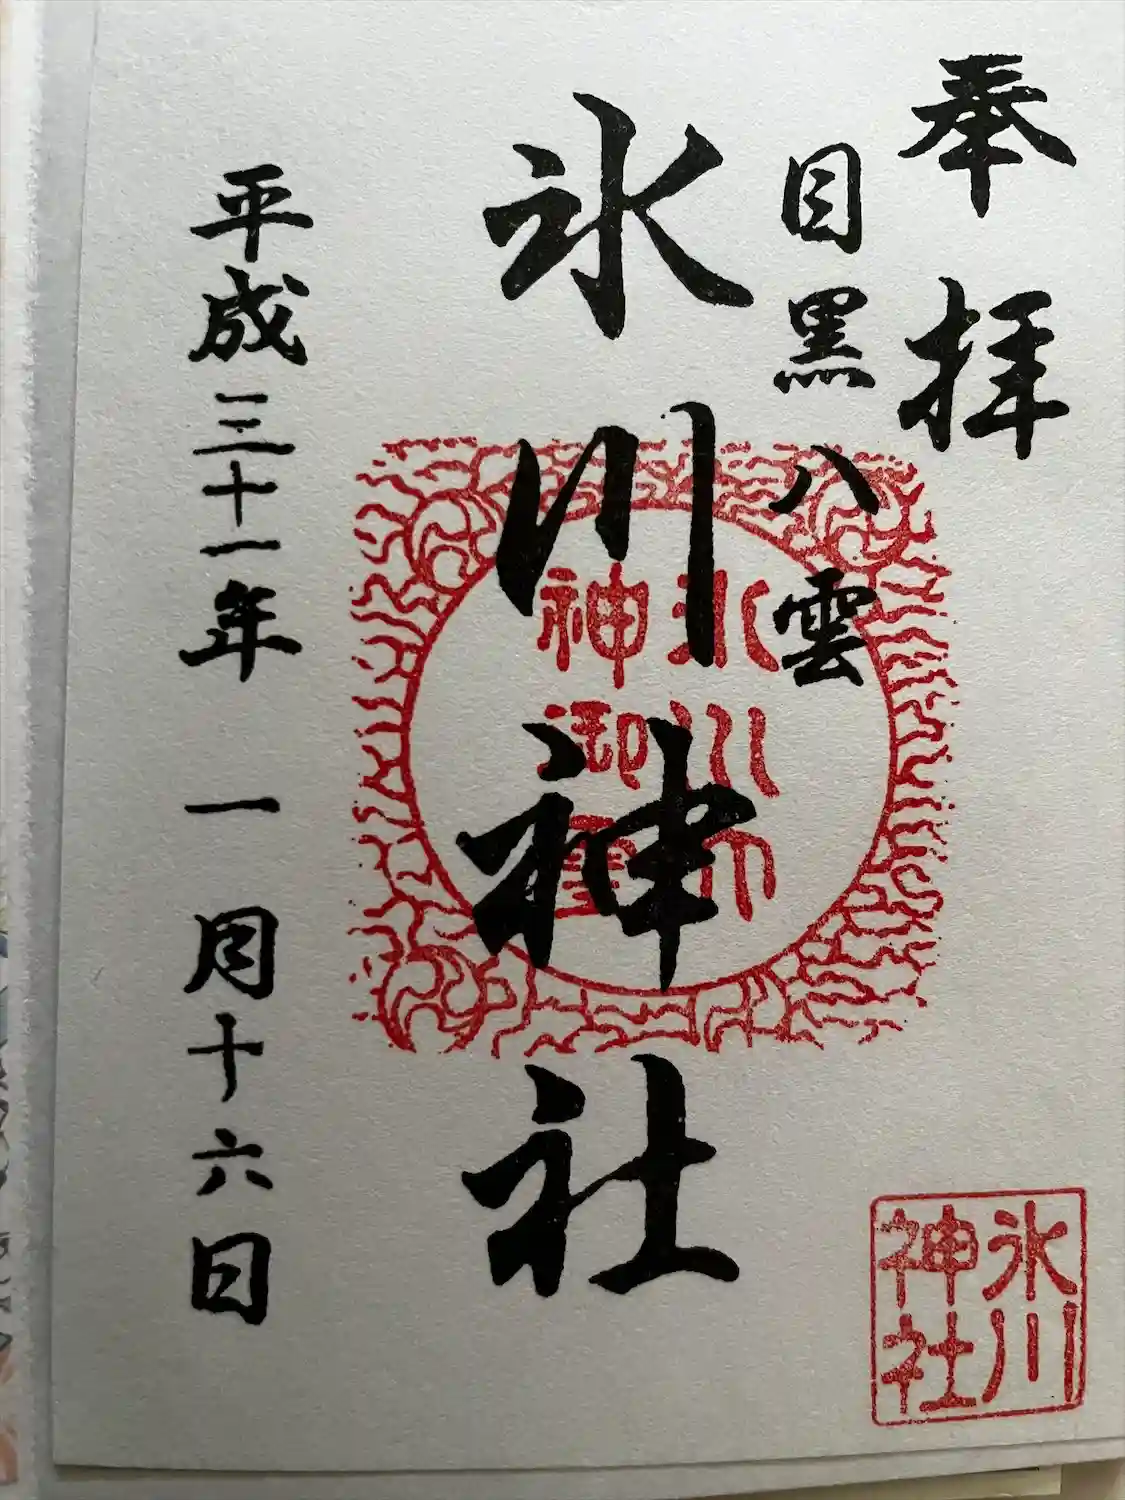 奉拝
目黒八雲
氷川神社
平成三十一年一月十六日
氷川
神社